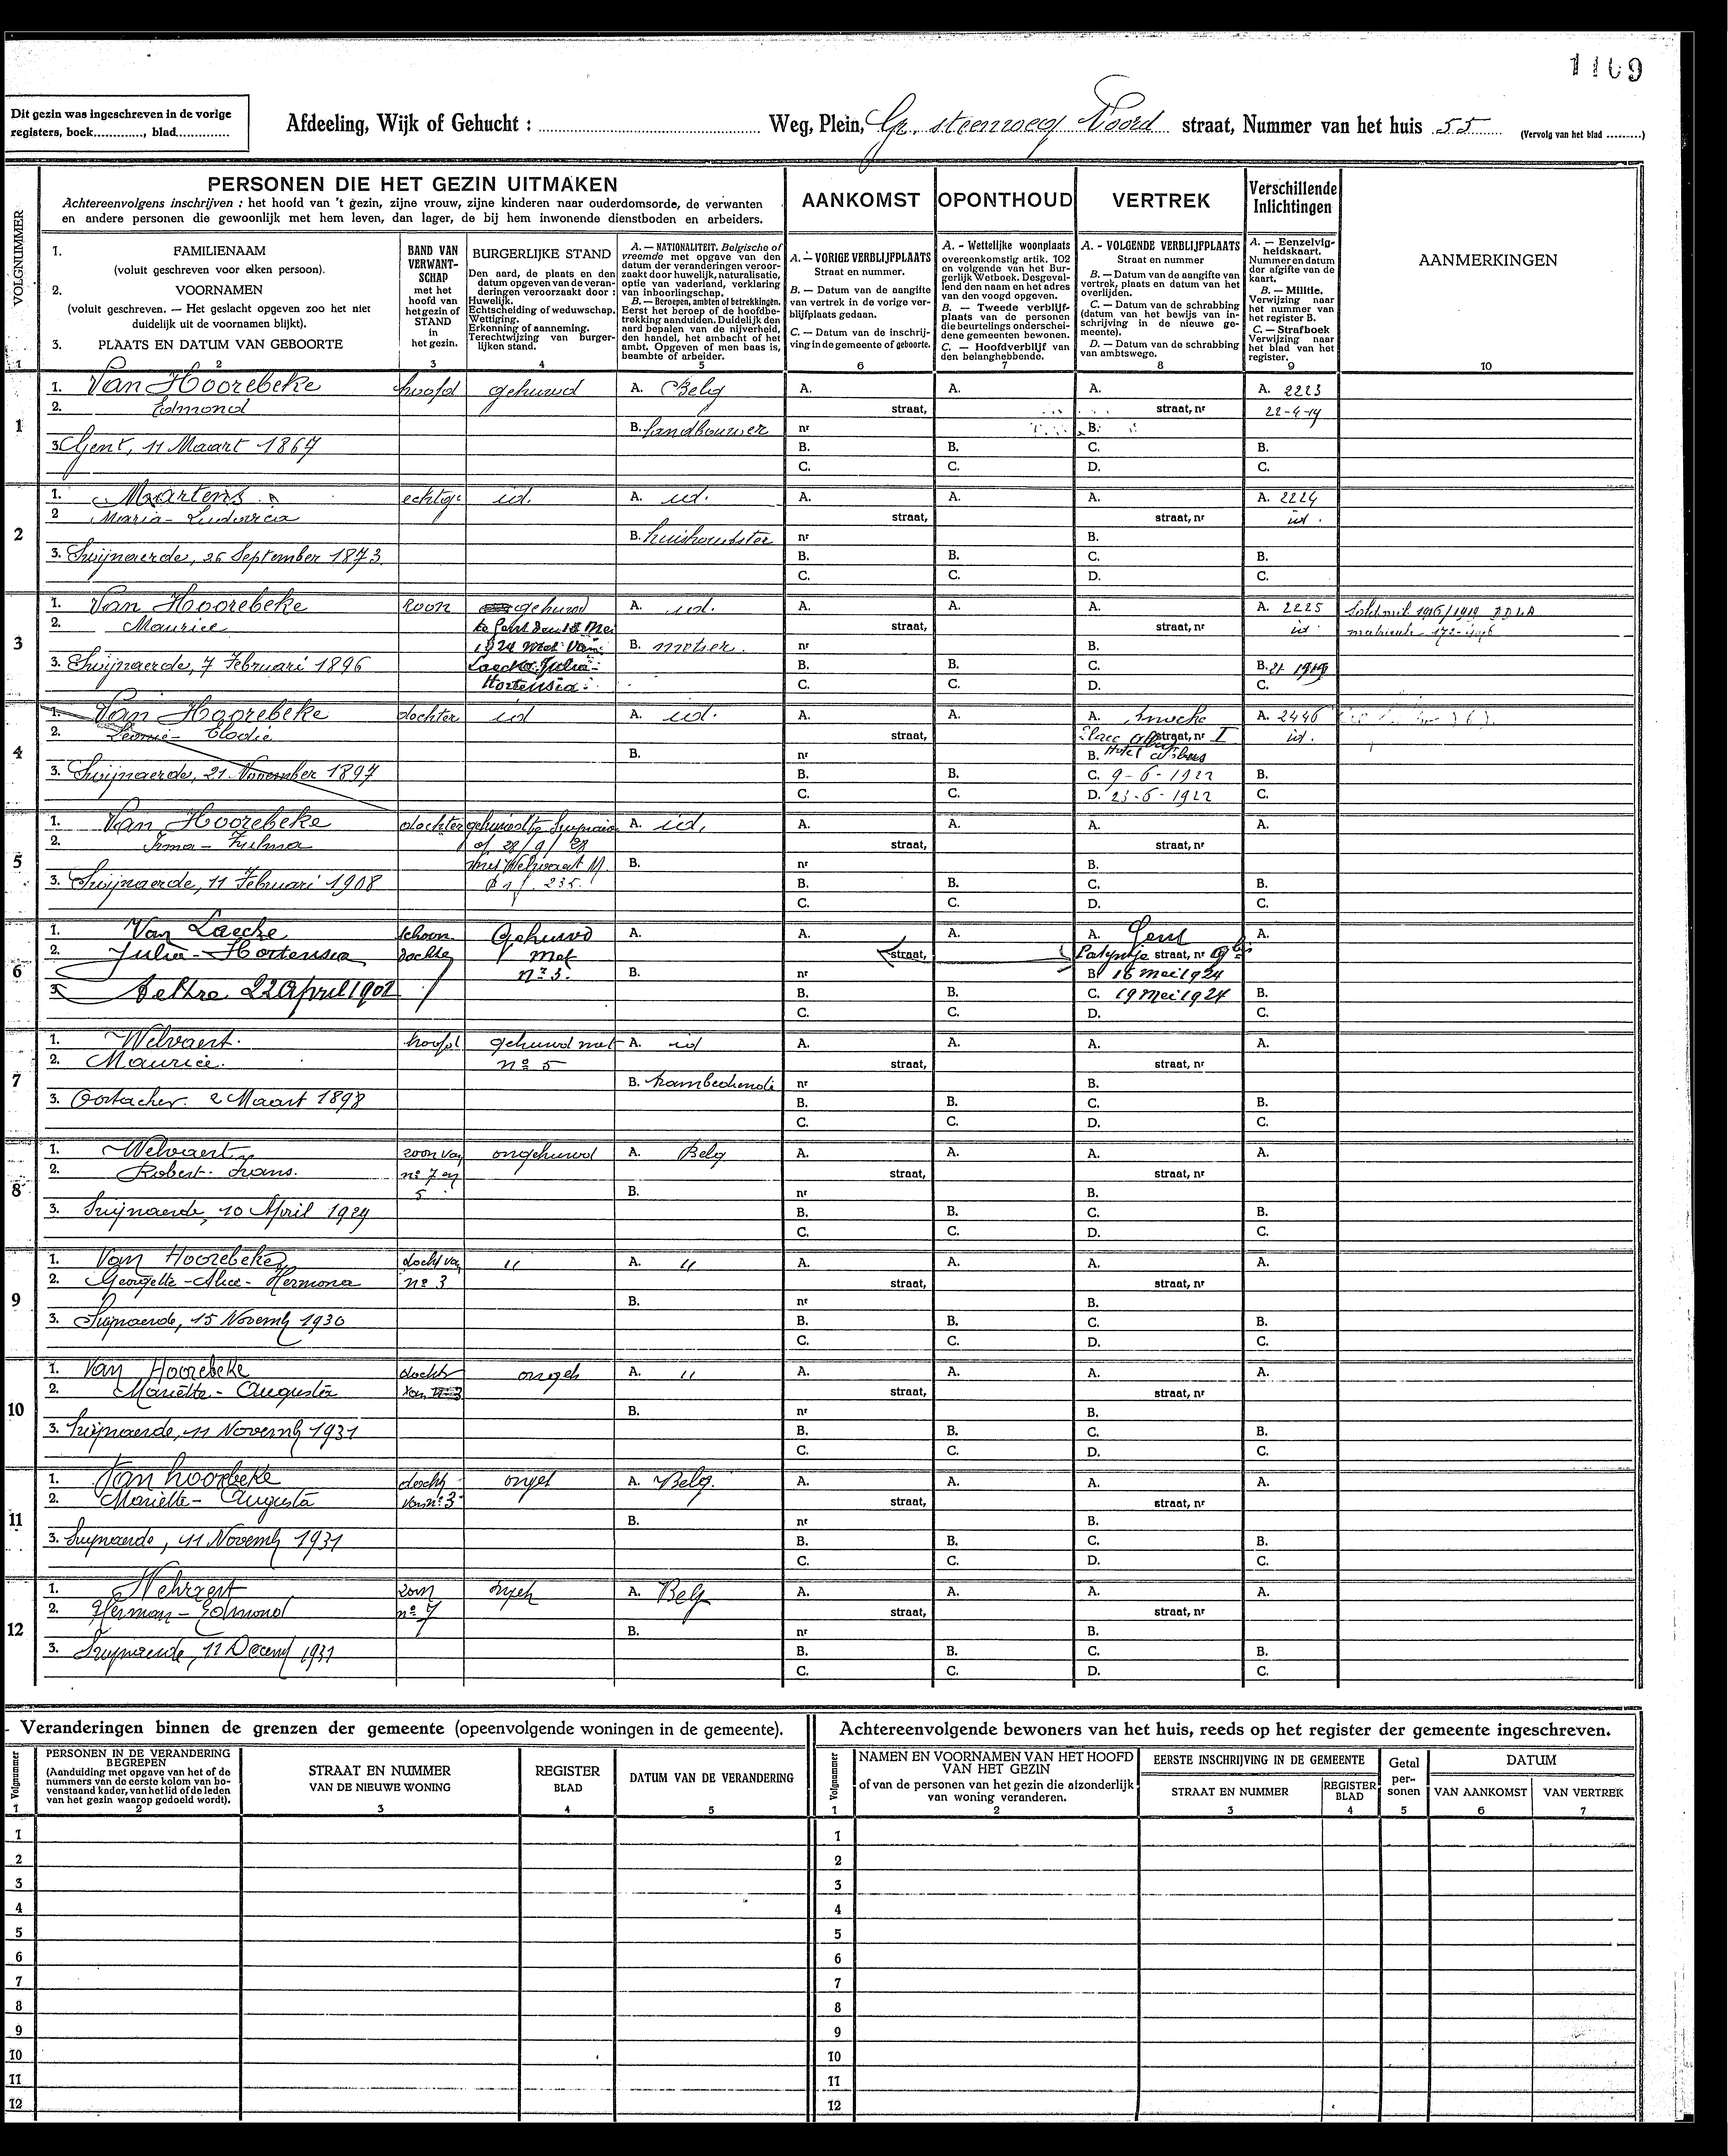 1109
Dit gezin was ingeschreven in de vorige
registers, boek............, blad.............
Afdeeling, Wijk of Gehucht : ........................ Weg, Plein, Gr. steenweg Noord straat, Nummer van het huis 55 (Vervolg van het blad .........)
VOLGNUMMER
PERSONEN DIE HET GEZIN UITMAKEN
Achtereenvolgens inschrijven : het hoofd van 't gezin, zijne vrouw, zijne kinderen naar ouderdomsorde, de verwanten
en andere personen die gewoonlijk met hem leven, dan lager, de bij hem inwonende dienstboden en arbeiders.
AANKOMST
OPONTHOUD
VERTREK
Verschillende
Inlichtingen
1. FAMILIENAAM
(voluit geschreven voor elken persoon).
2. VOORNAMEN
(voluit geschreven. — Het geslacht opgeven zoo het niet
duidelijk uit de voornamen blijkt).
3. PLAATS EN DATUM VAN GEBOORTE
BAND VAN
VERWANT-
SCHAP
met het
hoofd van
het gezin of
STAND
in
het gezin.
BURGERLIJKE STAND
Den aard, de plaats en den
datum opgeven van de veran-
deringen veroorzaakt door :
Huwelijk.
Echtscheiding of weduwschap.
Wettiging.
Erkenning of aanneming.
Terechtwijzing van burger-
lijken stand.
A. — NATIONALITEIT. Belgische of
vreemde met opgave van den
datum der veranderingen veroor-
zaakt door huwelijk, naturalisatie,
optie van vaderland, verklaring
van inboorlingschap.
B. — Beroepen, ambten of betrekkingen.
Eerst het beroep of de hoofdbe-
trekking aanduiden. Duidelijk den
aard bepalen van de nijverheid,
den handel, het ambacht of het
ambt. Opgeven of men baas is,
beambte of arbeider.
A. — VORIGE VERBLIJFPLAATS
Straat en nummer.
B. — Datum van de aangifte
van vertrek in de vorige ver-
blijfplaats gedaan.
C. — Datum van de inschrij-
ving in de gemeente of geboorte.
A. - Wettelijke woonplaats
overeenkomstig artik. 102
en volgende van het Bur-
gerlijk Wetboek. Desgeval-
lend den naam en het adres
van den voogd opgeven.
B. — Tweede verblijf-
plaats van de personen
die beurtelings onderschei-
dene gemeenten bewonen.
C. — Hoofdverblijf van
den belanghebbende.
A. - VOLGENDE VERBLIJFPLAATS
Straat en nummer
B. — Datum van de aangifte van
vertrek, plaats en datum van het
overlijden.
C. — Datum van de schrabbing
(datum van het bewijs van in-
schrijving in de nieuwe ge-
meente).
D. — Datum van de schrabbing
van ambtswege.
A. — Eenzelvig-
heidskaart.
Nummer en datum
der afgifte van de
kaart.
B. — Militie.
Verwijzing naar
het nummer van
het register B.
C. — Strafboek
Verwijzing naar
het blad van het
register.
AANMERKINGEN
1 2 3 4 5 6 7 8 9 10
1
1. Van Hoorebeke hoofd gehuwd A. Belg A. A. A. A. 2223
2. Edmond straat, straat, nr 22-4-19
B. landbouwer nr B.
3. Gent, 11 Maart 1867 B. B. C. B.
C. C. D. C.
2
1. Maartens echtge id. A. id. A. A. A. A. 2224
2 Maria - Ludovica straat, straat, nr id.
B. huishoudster nr B.
3. Swijnaerde, 26 September 1873. B. B. C. B.
C. C. D. C.
3
1. Van Hoorebeke zoon gehuwd A. id. A. A. A. A. 2225 1916/1919
2. Maurice te Gent den 18 Mei straat, straat, nr id
1924 met Van B. metser. nr B.
3. Swijnaerde, 7 Februari 1896 Laecke Julia- B. B. C. B. 21 1919
Hortensia. C. C. D. C.
4
1. Van Hoorebeke dochter id A. id. A. A. A. A. 2446
2. Leonie - Elodie straat, Place straat, nr I id.
B. nr B. Hotel
3. Swijnaerde, 21 November 1897 B. B. C. 9-6-1922 B.
C. C. D. 23-6-1922 C.
5
1. Van Hoorebeke dochter gehuwd te A. id, A. A. A. A.
2. Irma - Zulma 28/9/28 straat, straat, nr
met Welvaert M. B. nr B.
3. Swijnaerde, 11 Februari 1908 235. B. B. C. B.
C. C. D. C.
6
1. Van Laecke schoon Gehuwd A. A. A. A. Gent A.
2. Julia - Hortensia dochter met straat, straat, nr
nº 3. B. nr B. 16 mei 1924
3 Aeltre 22 April 1902 B. B. C. 19 Mei 1924 B.
C. C. D. C.
7
1. Welvaert. hoofd gehuwd met A. id A. A. A. A.
2. Maurice. nº 5 straat, straat, nr
B. trambediende nr B.
3. Oostacker. 2 Maart 1898 B. B. C. B.
C. C. D. C.
8
1. Welvaert zoon van ongehuwd A. Belg A. A. A. A.
2. Robert. Frans. nº 7 en straat, straat, nr
5 B. nr B.
3. Swijnaerde, 10 April 1929 B. B. C. B.
C. C. D. C.
9
1. Van Hoorebeke docht van " A. " A. A. A. A.
2. Georgette - Alice - Hermona nº 3 straat, straat, nr
B. nr B.
3. Swijnaerde, 15 Novemb 1930 B. B. C. B.
C. C. D. C.
10
1. Van Hoorebeke docht ongeh A. " A. A. A. A.
2. Mariëtte - Augusta van nº 3 straat, straat, nr
B. nr B.
3. Swijnaerde, 11 Novemb 1931 B. B. C. B.
C. C. D. C.
11
1. Van hoorbeke docht ongeh A. Belg. A. A. A. A.
2. Mariëtte - Augusta van nº 3 straat, straat, nr
B. nr B.
3. Swijnaerde, 11 Novemb 1931 B. B. C. B.
C. C. D. C.
12
1. zoon ongeh A. Belg A. A. A. A.
2. Herman - Edmond nº 7 straat, straat, nr
B. nr B.
3. Swijnaerde, 11 Decemb 1931 B. B. C. B.
C. C. D. C.
Veranderingen binnen de grenzen der gemeente (opeenvolgende woningen in de gemeente).
Volgnummer
PERSONEN IN DE VERANDERING
BEGREPEN
(Aanduiding met opgave van het of de
nummers van de eerste kolom van bo-
venstaand kader, van het lid of de leden
van het gezin waarop gedoeld wordt).
STRAAT EN NUMMER
VAN DE NIEUWE WONING
REGISTER
BLAD
DATUM VAN DE VERANDERING
1 2 3 4 5
1
2
3
4
5
6
7
8
9
10
11
12
Achtereenvolgende bewoners van het huis, reeds op het register der gemeente ingeschreven.
Volgnummer
NAMEN EN VOORNAMEN VAN HET HOOFD
VAN HET GEZIN
of van de personen van het gezin die afzonderlijk
van woning veranderen.
EERSTE INSCHRIJVING IN DE GEMEENTE
STRAAT EN NUMMER
REGISTER
BLAD
Getal
per-
sonen
DATUM
VAN AANKOMST
VAN VERTREK
1 2 3 4 5 6 7
1
2
3
4
5
6
7
8
9
10
11
12